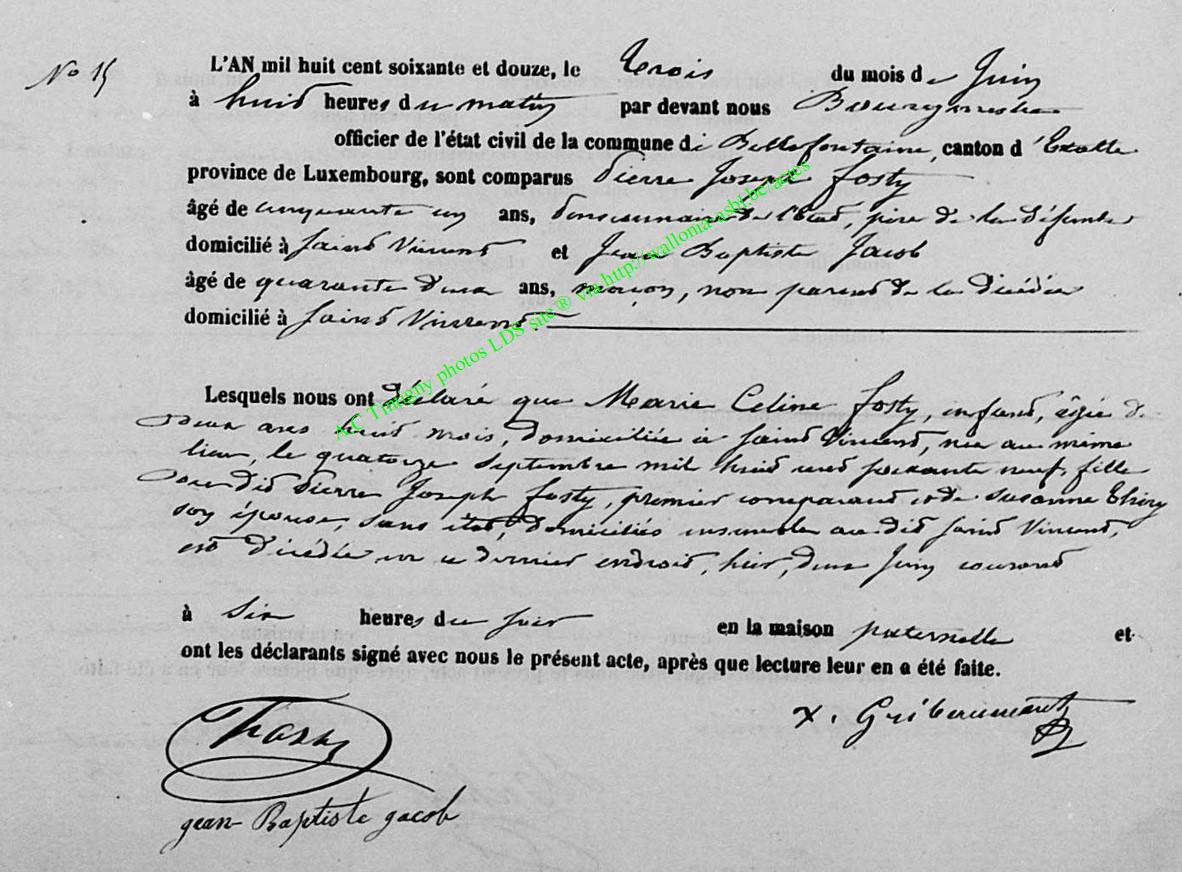 No 15
L'AN mil huit cent soixante et douze, le trois du mois de Juin
à huit heures du matin par devant nous Bourgmestre
officier de l'état civil de la commune de Bellefontaine, canton d'Etalle
province de Luxembourg, sont comparus Pierre Joseph Fosty
âgé de cinquante un ans, pensionnaire de l'Etat, père de la défunte
domicilié à Saint Vincent et Jean Baptiste Jacob
âgé de quarante deux ans, maçon, non parent de la décédée
domicilié à Saint Vincent.
Lesquels nous ont déclaré que Marie Celine Fosty, enfant, âgée de
deux ans huit mois, domiciliée à Saint Vincent, née au même
lieu, le quatorze Septembre mil huit cent soixante neuf, fille
du dit Pierre Joseph Fosty, premier comparant et de Susanne Thiry
son épouse, sans état, domiciliés ensemble au dit Saint Vincent,
est décédée en ce dernier endroit, hier, deux Juin courant
à six heures du soir en la maison paternelle et
ont les déclarants signé avec nous le présent acte, après que lecture leur en a été faite.
x. Gribaumont
jean Baptiste jacob
AC Tintigny photos LDS site ® via http://wallonia-asbl.be/actes